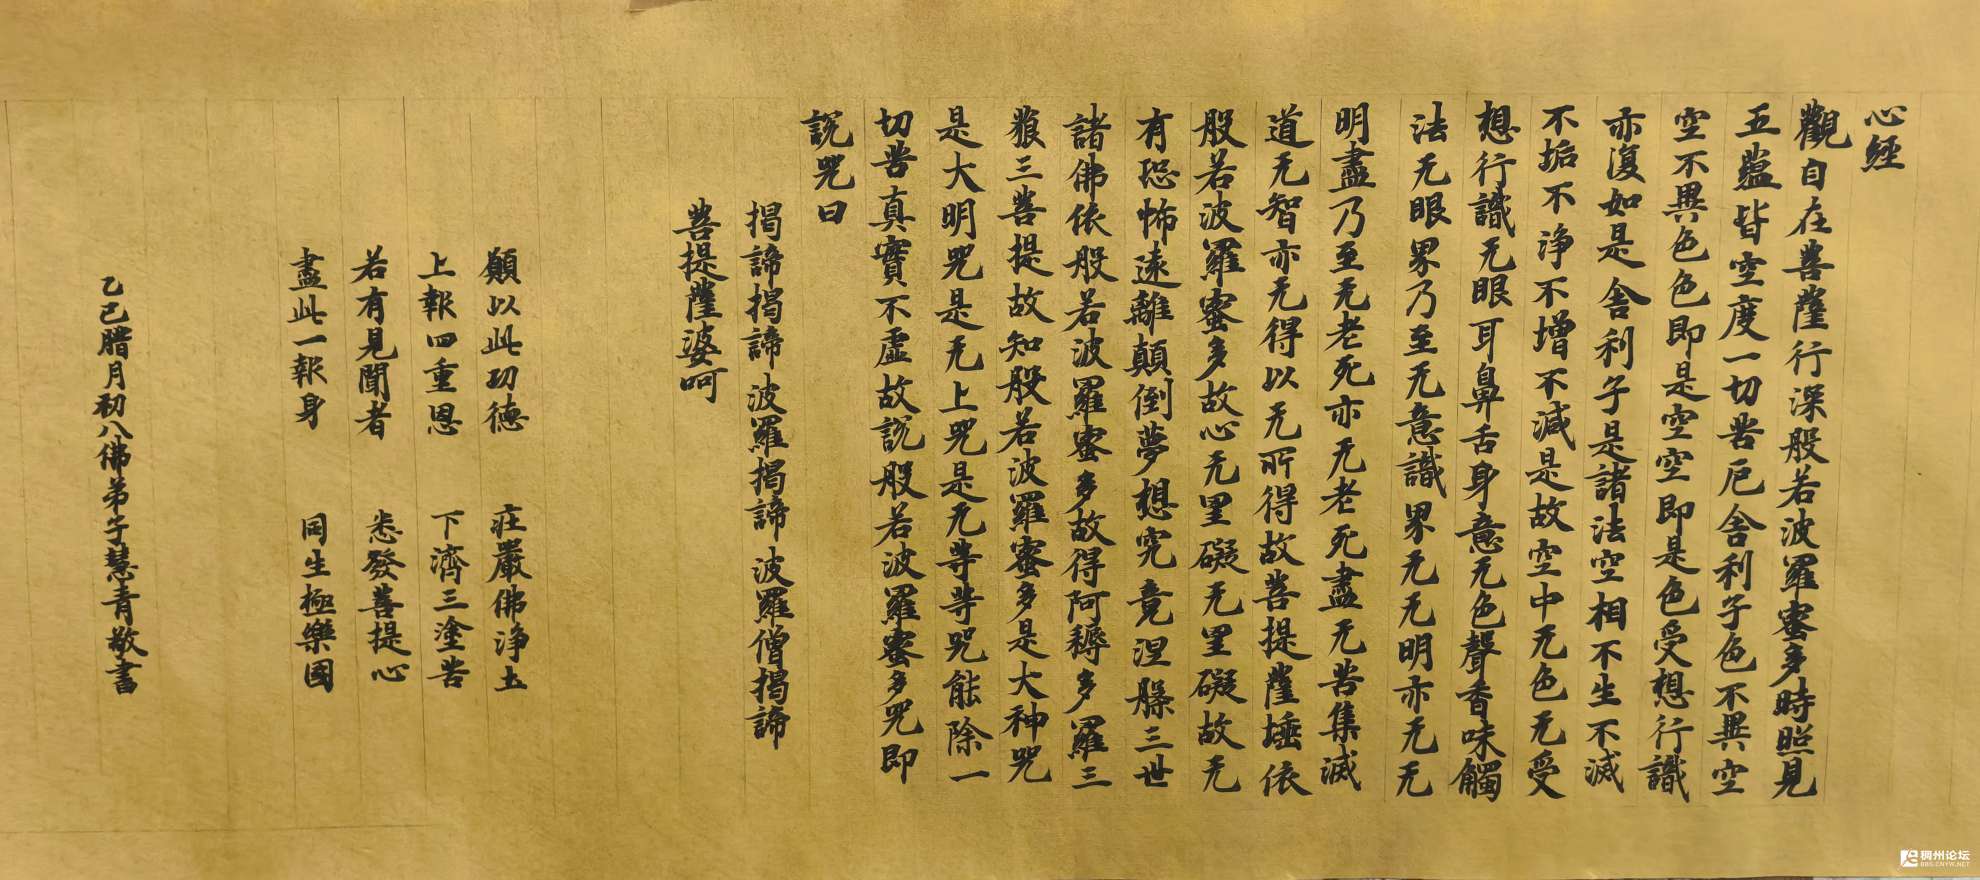 心經
觀自在菩薩行深般若波羅蜜多時照見
五蘊皆空度一切苦厄舍利子色不異空
空不異色色即是空空即是色受想行識
亦復如是舍利子是諸法空相不生不滅
不垢不淨不增不減是故空中无色无受
想行識无眼耳鼻舌身意无色聲香味觸
法无眼界乃至无意識界无无明亦无无
明盡乃至无老死亦无老死盡无苦集滅
道无智亦无得以无所得故菩提薩埵依
般若波羅蜜多故心无罣礙无罣礙故无
有恐怖遠離顛倒夢想究竟涅槃三世
諸佛依般若波羅蜜多故得阿耨多羅三
藐三菩提故知般若波羅蜜多是大神咒
是大明咒是无上咒是无等等咒能除一
切苦真實不虛故說般若波羅蜜多咒即
說咒曰
揭諦揭諦 波羅揭諦 波羅僧揭諦
菩提薩婆呵
願以此功德 莊嚴佛淨土
上報四重恩 下濟三塗苦
若有見聞者 悉發菩提心
盡此一報身 同生極樂國
乙巳臘月初八佛弟子慧青敬書
稠州论坛
BBS.CNYW.NET